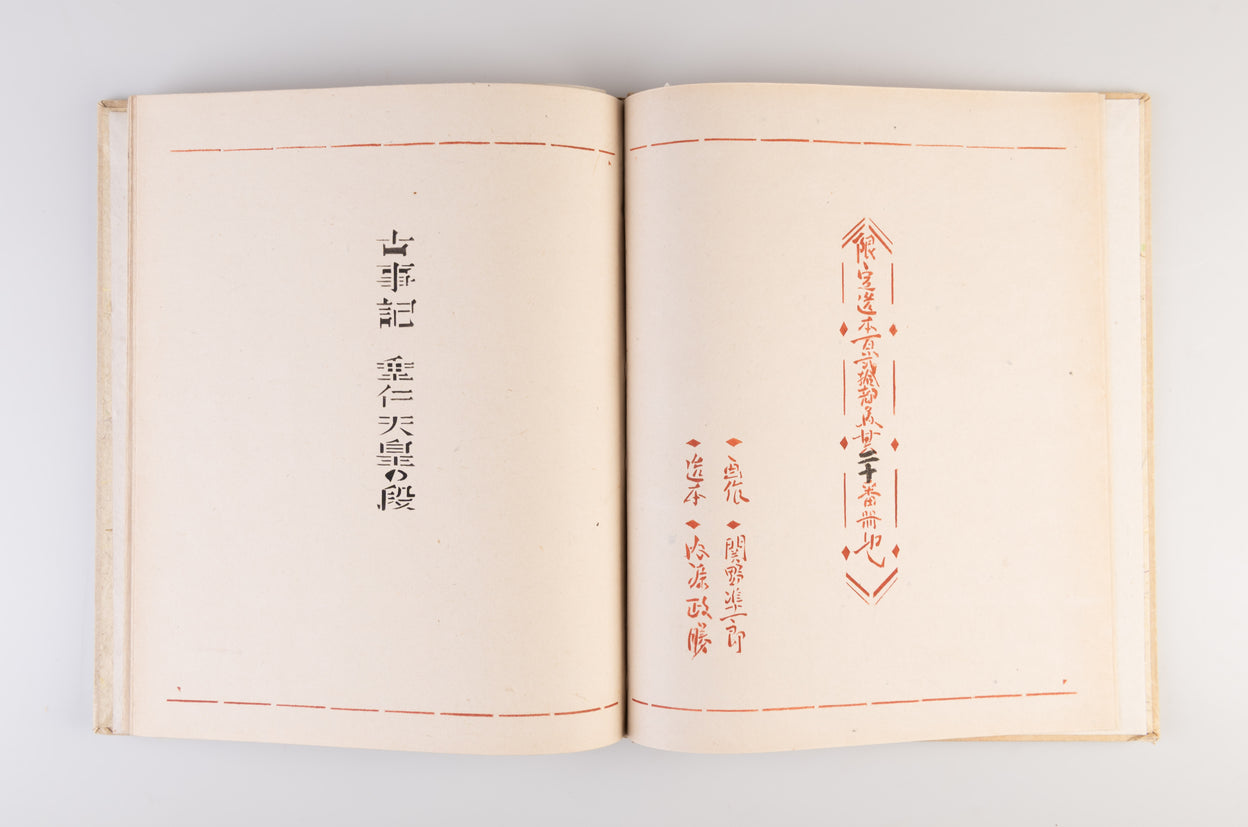 限定造本百弐拾部其二十番冊也
画作 関野凖一郎
造本 内藤政勝
古事記 垂仁天皇の段